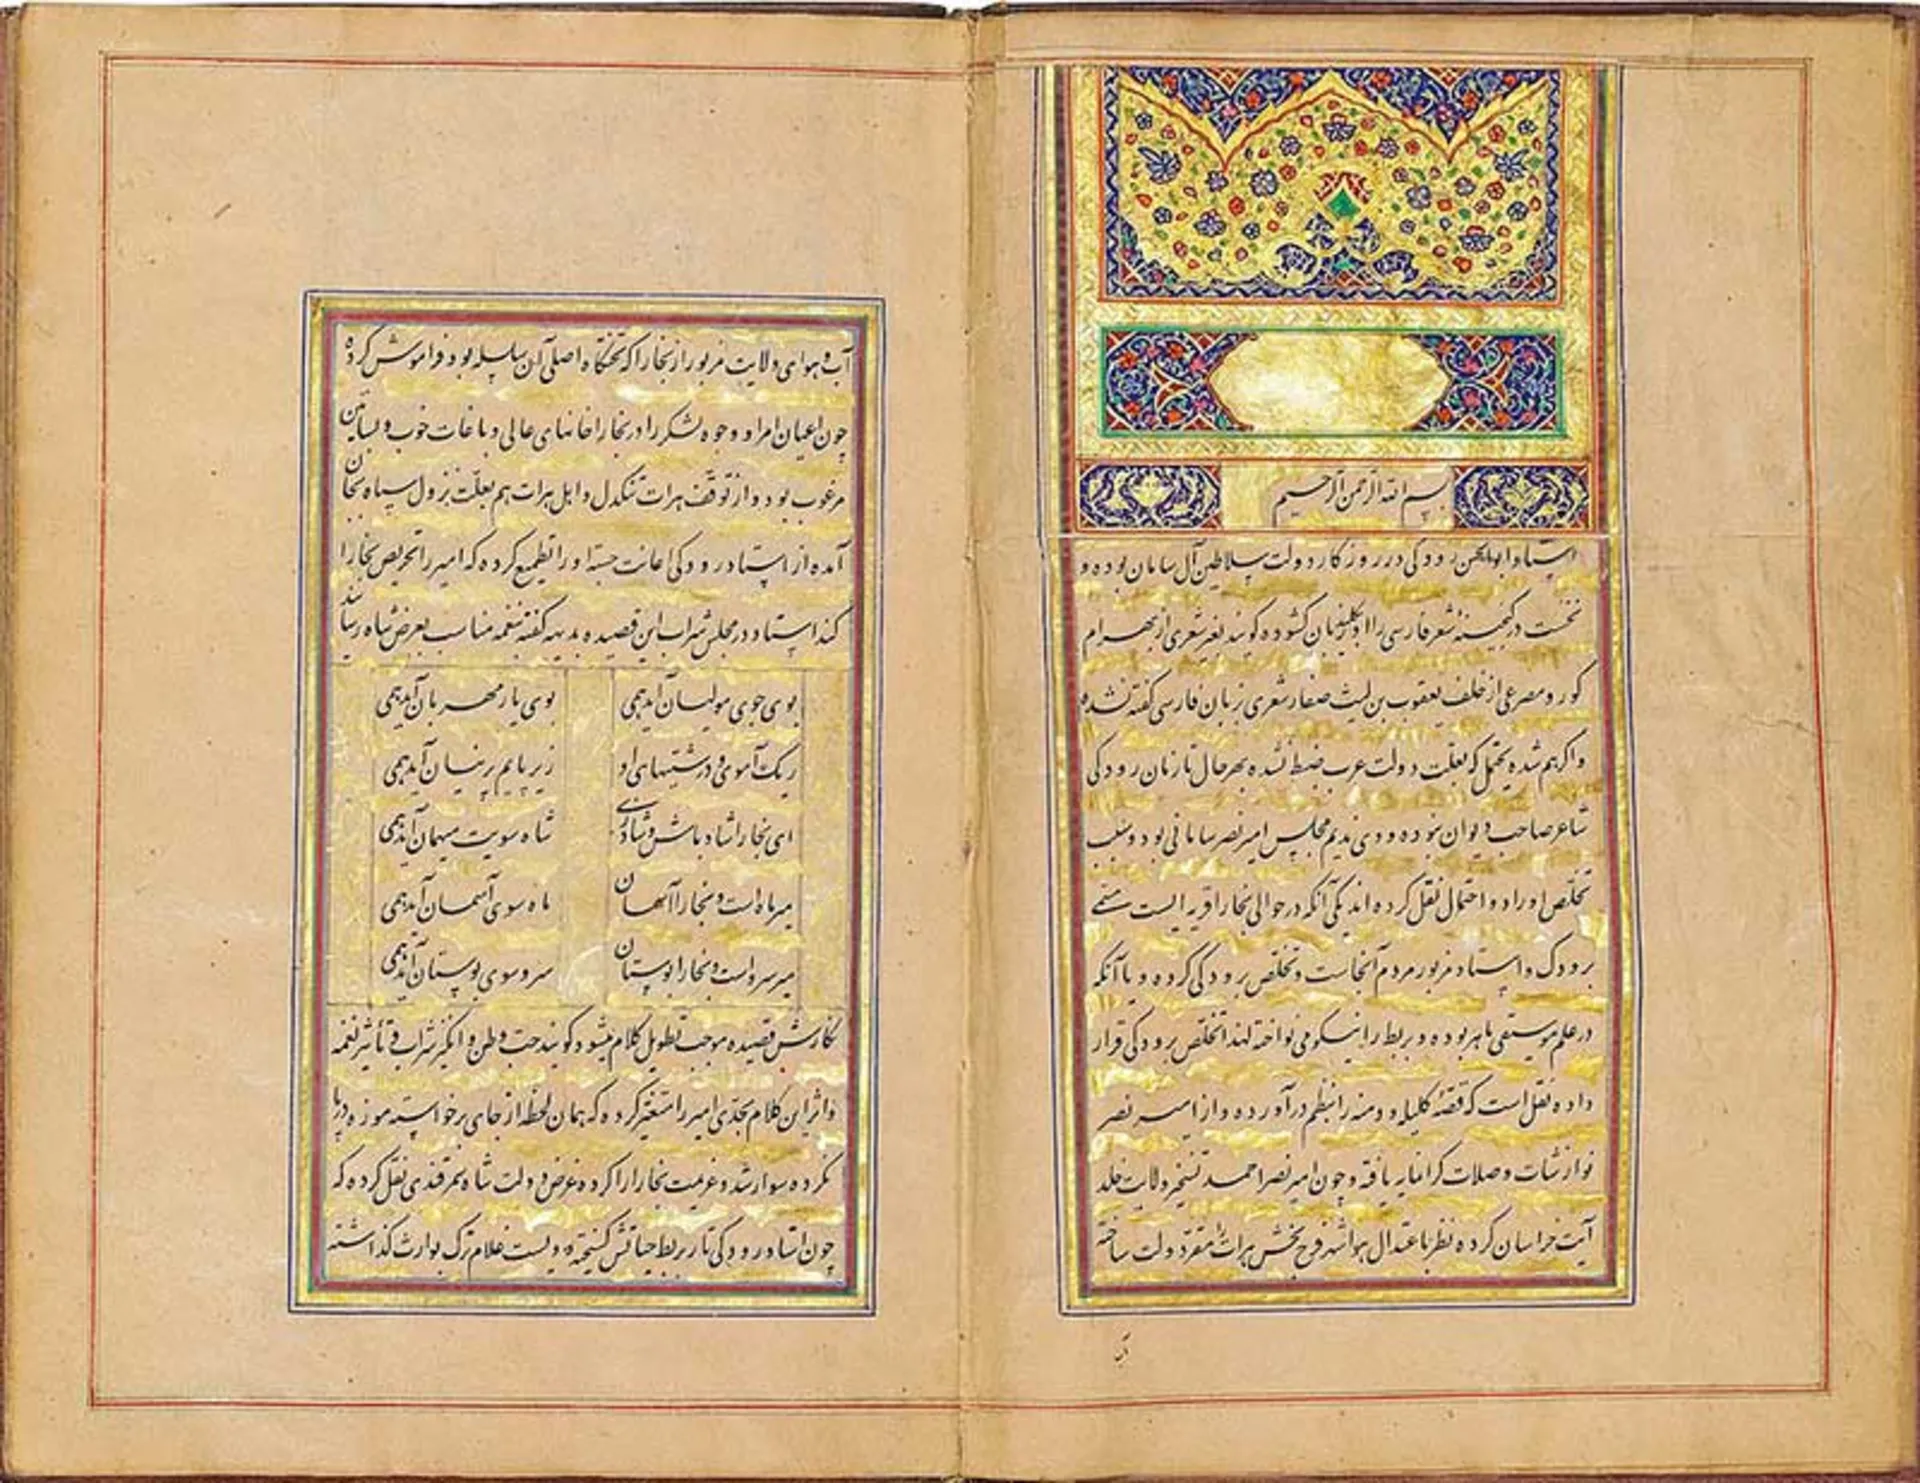 بسم الله الرحمن الرحیم
استاد ابوالحسن رودکی در روزکار دولت سلاطین آل سامان بوده و
نخست در کنجینه شعر فارسی را او بکلید زبان کشوده کویند بغیر شعری از بهرام
کور و مصرعی از خلف یعقوب بن لیث صفار شعری بزبان فارسی کفته نشده
و اکر هم شده یحتمل که بعلت دولت عرب ضبط نشده بهرحال تا زمان رودکی
شاعر صاحب دیوان نبوده و وی ندیم مجلس امیر نصر سامانی بود و سبب
تخلص او را دو احتمال نقل کرده اند یکی آنکه در حوالی بخارا قریه ایست مسمی
برودک و استاد مزبور مردم آنجاست و تخلص برودکی کرده و یا آنکه
در علم موسیقی ماهر بوده و بربط را نیکو می نواخته لهذا تخلص برودکی قرار
داده نقل است که قصه کلیله و دمنه را بنظم درآورده و از امیر نصر
نوازشات و صلات کرانمایه یافته و چون امیر نصر احمد تسخیر ولایت خلد
آیت خراسان کرده نظر باعتدال هوا شهر فرح بخش هرات را مقر دولت ساخته
آب
آب و هوای ولایت مزبور از بخارا که تختکاه اصلی آن سلسله بود فراموش کرده
چون اعیان امرا و وجوه لشکر را در بخارا خانهای عالی و باغات خوب و بساتین
مرغوب بود و از توقف هرات تنکدل و اهل هرات هم بعلت نزول سپاه بجان
آمده از استاد رودکی اعانت جسته او را تطمیع کرده که امیر را تحریص بخارا
کند استاد در مجلس شراب این قصیده بدیهه کفته بنغمه مناسب بعرض شاه رسانید
بوی جوی مولیان آید همی بوی یار مهربان آید همی
ریک آموی و درشتیهای او زیر پایم پرنیان آید همی
ای بخارا شاد باش و شاد زی شاه سویت میهمان آید همی
میر ماه است و بخارا آسمان ماه سوی آسمان آید همی
میر سرو است و بخارا بوستان سرو سوی بوستان آید همی
نکارش قصیده موجب تطویل کلام میشود کویند حب وطن و انکیز شراب و تأثیر نغمه
و اثر این کلام بحدی امیر را متغیر کرده که همان لحظه از جای برخواسته موزه در پا
نکرده سوار شد و عزیمت بخارا را کرده عرض دولت شاه سمرقندی نقل کرده که
چون استاد رودکی تار بربط حیاتش کسیخته دویست غلام ترک بوارث کذاشته